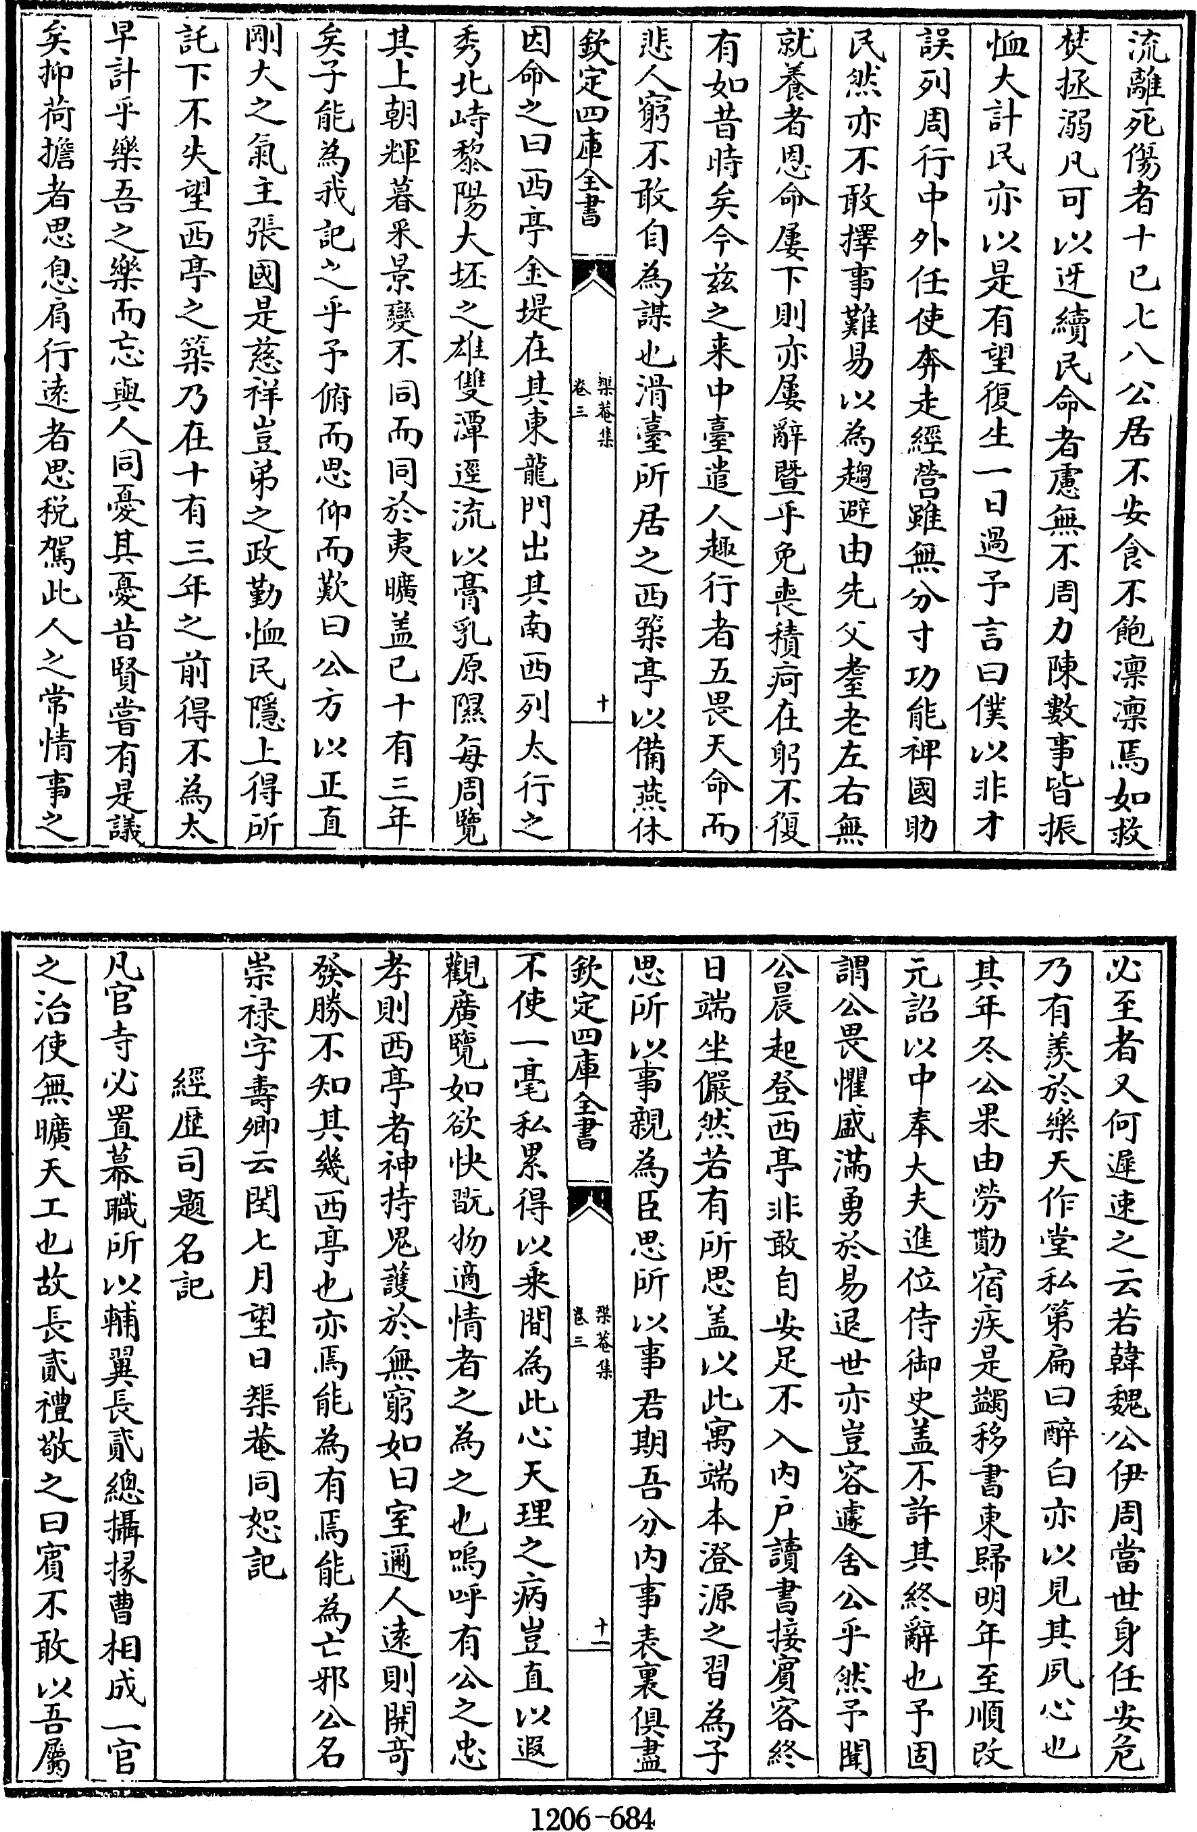 流離死傷者十已七八公居不安食不飽凛凛焉如救
焚拯溺凡可以迓續民命者慮無不周力陳數事皆振
恤大計民亦以是有望復生一日過予言曰僕以非才
誤列周行中外任使奔走經營雖無分寸功能裨國助
民然亦不敢擇事難易以為趨避由先父耋老左右無
就養者恩命屢下則亦屢辭暨乎免喪積疴在躬不復
有如昔時矣今兹之来中臺遣人趣行者五畏天命而
悲人窮不敢自為謀也滑臺所居之西築亭以備燕休
欽定四庫全書
榘菴集
卷三
十
因命之曰西亭金堤在其東龍門出其南西列太行之
秀北峙黎陽大坯之雄雙潭逕流以膏乳原隰每周覽
其上朝輝暮采景變不同而同於夷曠盖已十有三年
矣子能為我記之乎予俯而思仰而歎曰公方以正直
剛大之氣主張國是慈祥豈弟之政勤恤民隱上得所
託下不失望西亭之築乃在十有三年之前得不為太
早計乎樂吾之樂而忘與人同憂其憂昔賢嘗有是議
矣抑荷擔者思息肩行逺者思税駕此人之常情事之
必至者又何遲速之云若韓魏公伊周當世身任安危
乃有羨於樂天作堂私第扁曰醉白亦以見其夙心也
其年冬公果由勞勩宿疾是蠲移書東歸明年至順改
元詔以中奉大夫進位侍御史盖不許其終辭也予固
謂公畏懼盛滿勇於易退世亦豈容遽舍公乎然予聞
公晨起登西亭非敢自安足不入内户讀書接賓客終
日端坐儼然若有所思盖以此寓端本澄源之習為子
思所以事親為臣思所以事君期吾分内事表裏俱盡
欽定四庫全書
榘菴集
卷三
十一
不使一毫私累得以乗間為此心天理之病豈直以遐
觀廣覽如欲快翫物適情者之為之也嗚呼有公之忠
孝則西亭者神持鬼護於無窮如曰室邇人逺則開竒
發勝不知其幾西亭也亦焉能為有焉能為亡邪公名
崇禄字壽卿云閏七月望日榘菴同恕記
經歴司題名記
凡官寺必置幕職所以輔翼長貳總攝掾曹相成一官
之治使無曠天工也故長貳禮敬之曰賓不敢以吾屬
1206-684